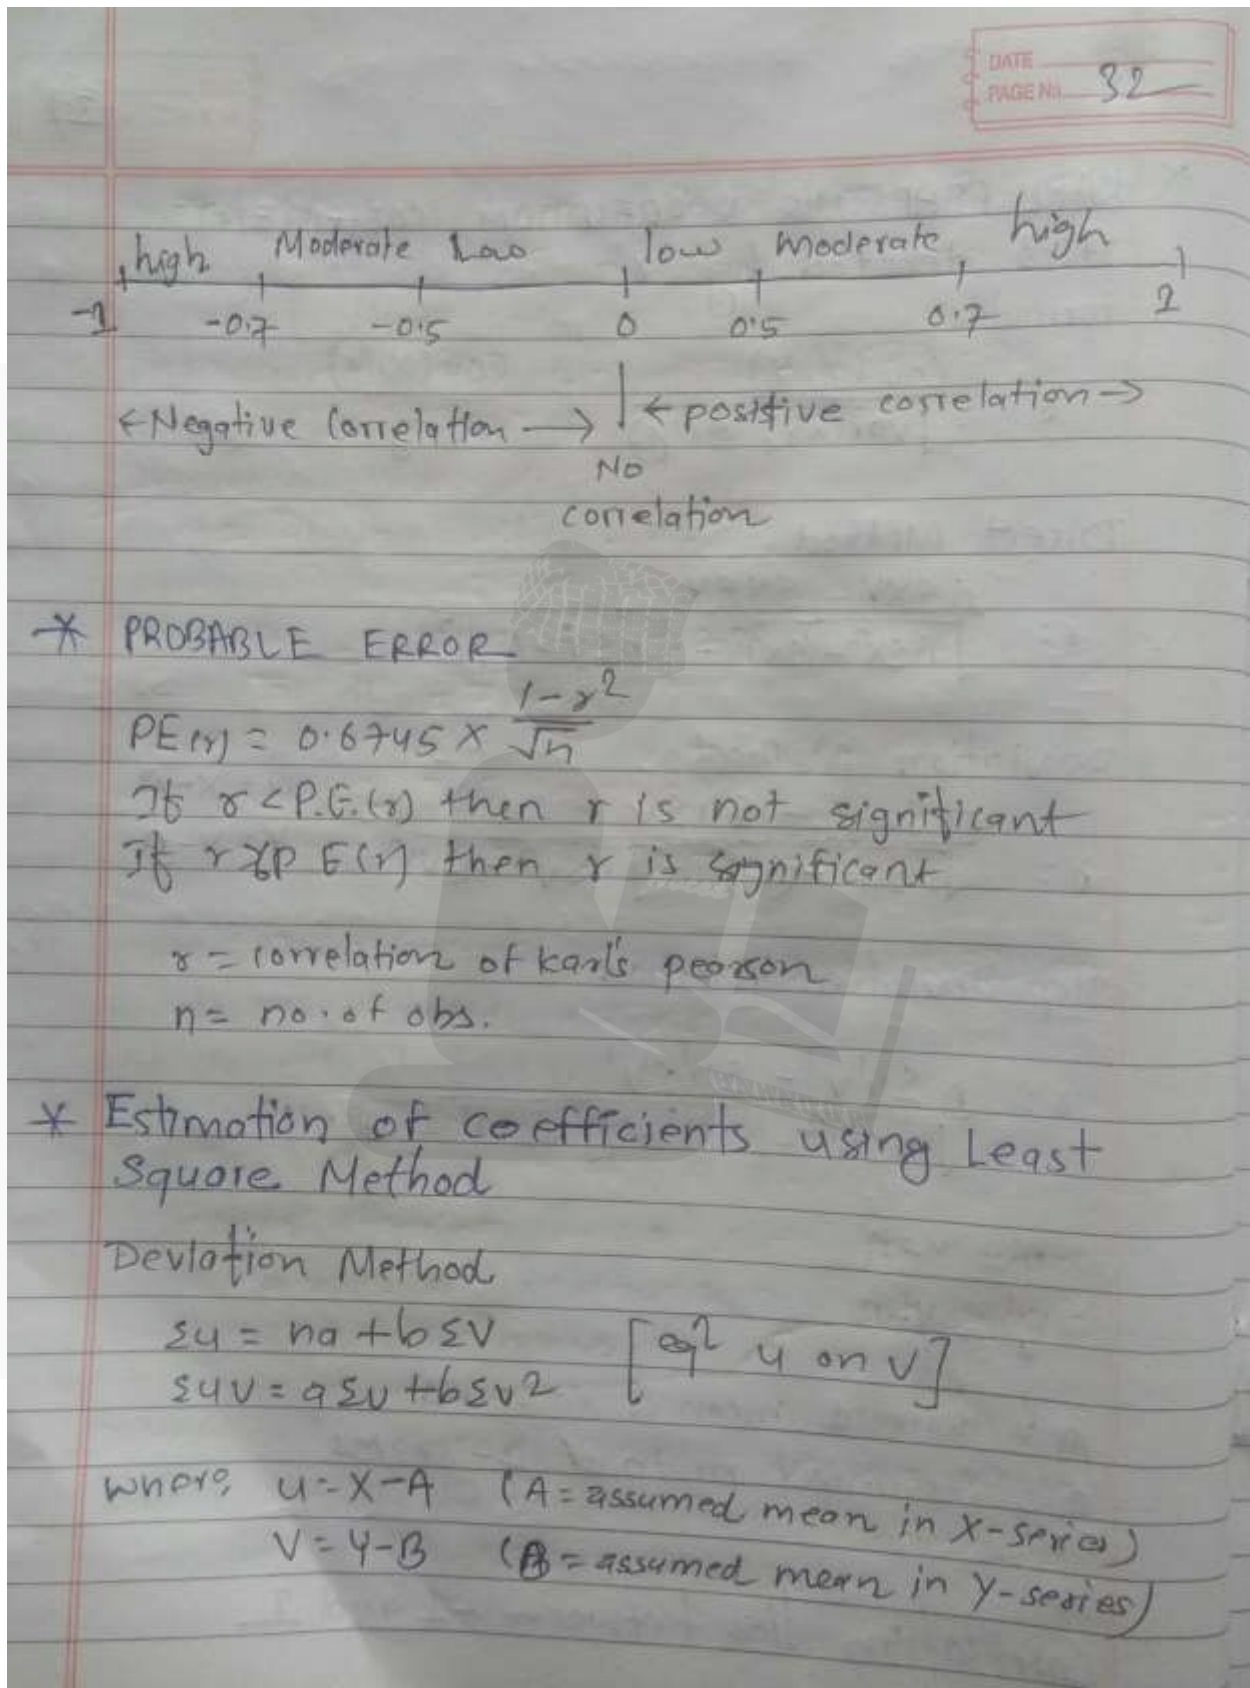 DATE
PAGE No. 32
high Moderate Low low moderate high
-1 -0.7 -0.5 0 0.5 0.7 1
← Negative Correlation → ← positive correlation →
No
correlation
* PROBABLE ERROR
PE(r) = 0.6745 × (1-r²)/√n
If r < P.E.(r) then r is not significant
If r > P E(r) then r is significant
r = correlation of karl's pearson
n = no. of obs.
* Estimation of coefficients using Least
Square Method
Deviation Method
Σu = na + bΣv [eqⁿ u on v]
Σuv = aΣv + bΣv²
where, u = X-A (A = assumed mean in X-series)
V = Y-B (B = assumed mean in Y-series)